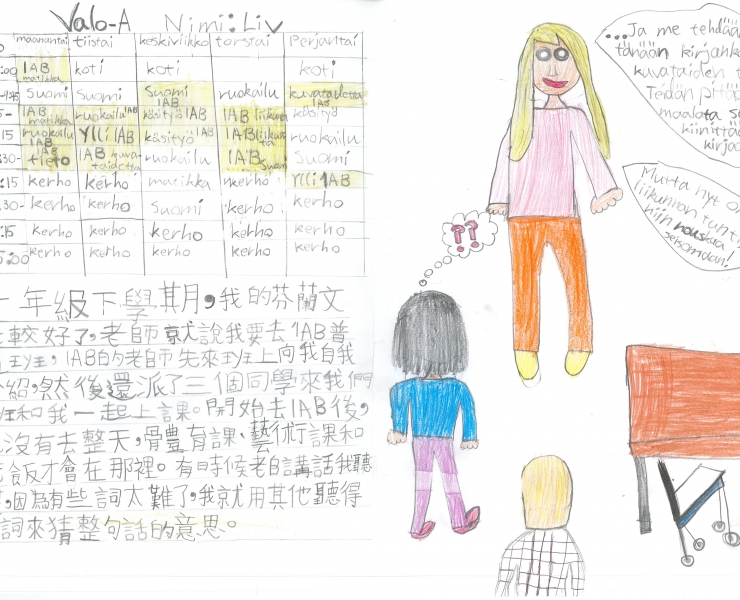 Valo-A Nimi: Liv
maanantai tiistai keskiviikko torstai Perjantai
1AB matikka koti koti koti
Suomi Suomi Suomi 1AB ruokailu kuvataidetta 1AB
1AB matikka ruokailu 1AB käsityö 1AB 1AB liikunta käsityö
ruokailu 1AB Ylli 1AB käsityö 1AB liikunta ruokailu
tieto 1AB kuvataidetta ruokailu 1AB Suomi Suomi
kerho kerho matikka kerho Ylli 1AB
kerho kerho Suomi kerho kerho
kerho kerho kerho kerho kerho
kerho kerho kerho kerho kerho
一年級下學期,我的芬蘭文
較好了,老師就說我要去1AB普
班,1AB的老師先來班上向我自我
紹,然後還派了三個同學來我們
班和我一起上課。開始去1AB後,
沒有去整天,體育課、藝術課和
飯才會在那裡。有時候老師講話我聽
,因為有些詞太難了,我就用其他聽得
詞來猜整句話的意思。
...Ja me tehdään
tänään kirjan
kuvataiden
Teidän pitää
maalata
kiinittää
kirjaa
Mutta nyt on
liikunnan tunti
niin nouskaa
seisomaan!
??